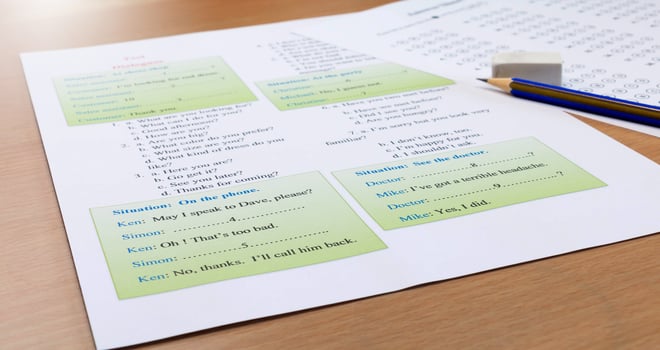 Test
Dialogues
Situation: At dress shop
I'm looking for red dress.
10
Customer: Thank you.
1. a. What are you looking for?
b. What can I do for you?
c. Good afternoon.
d. How are you?
2. a. Are you big?
b. What color do you prefer?
c. What size are you?
d. What kind of dress do you
like?
3. a. Here you are?
b. Go get it?
c. See you later?
d. Thanks for coming?
Situation: On the phone.
Ken: May I speak to Dave, please?
Simon: 4
Ken: Oh ! That's too bad.
Simon: 5
Ken: No, thanks. I'll call him back.
Situation: At the party
Michael: No, I guess not.
Christine: ?
a. Have you two met before?
b. Have we met before?
c. Did I see you?
d. Are you hungry?
7. a. I'm sorry but you look very
familiar?
b. I don't know, too.
c. I'm happy for you.
d. I shouldn't ask.
Situation: See the doctor.
Doctor: 8 ?
Mike: I've got a terrible headache.
Doctor: 9 ?
Mike: Yes, I did.